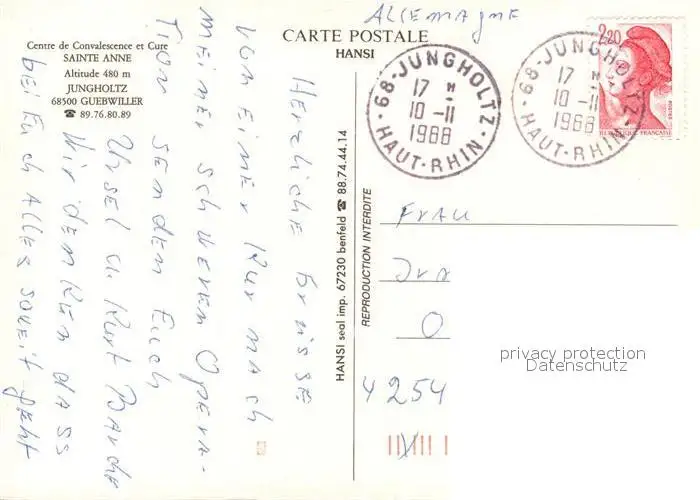 Centre de Convalescence et Cure
SAINTE ANNE
Altitude 480 m
JUNGHOLTZ
68500 GUEBWILLER
☎ 89.76.80.89
CARTE POSTALE
HANSI
Allemagne
68-JUNGHOLTZ
17 H
10-11
1988
HAUT-RHIN
68-JUNGHOLTZ
17 H
10-11
1988
HAUT-RHIN
2,20
REPUBLIQUE FRANÇAISE
POSTES
Herzliche Grüsse
von einer Kur nach
meiner schweren Opera-
tion senden Euch
Ursel u. Kurt
Wir denken dass
bei Euch Alles soweit geht
HANSI seal imp. 67230 benfeld ☎ 88.74.44.14
REPRODUCTION INTERDITE
Frau
O
4254
privacy protection
Datenschutz